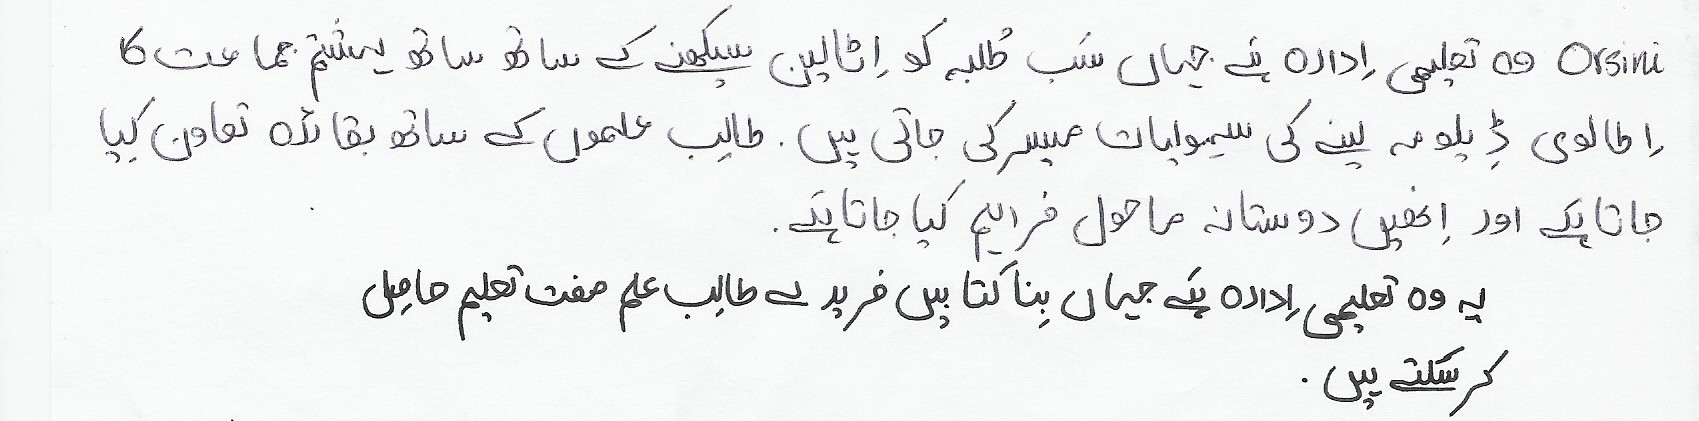 Orsini وہ تعلیمی اِدارہ ہَے جہاں سَب طُلبہ کو اِٹالین سیکھنے کے ساتھ ساتھ ہشتم جماعت کا
اِطالوی ڈِپلومہ لینے کی سہولیات میسر کی جاتی ہیں۔ طالِب علموں کے ساتھ بقائدہ تعاون کِیا
جاتا ہَے اور اِنھیں دوستانہ ماحول فراہم کیا جاتا ہَے۔
یہ وہ تعلیمی اِدارہ ہَے جہاں بِنا کتابیں خریدے طالِب علم مفت تعلیم حاصِل
کر سَکتے ہیں۔